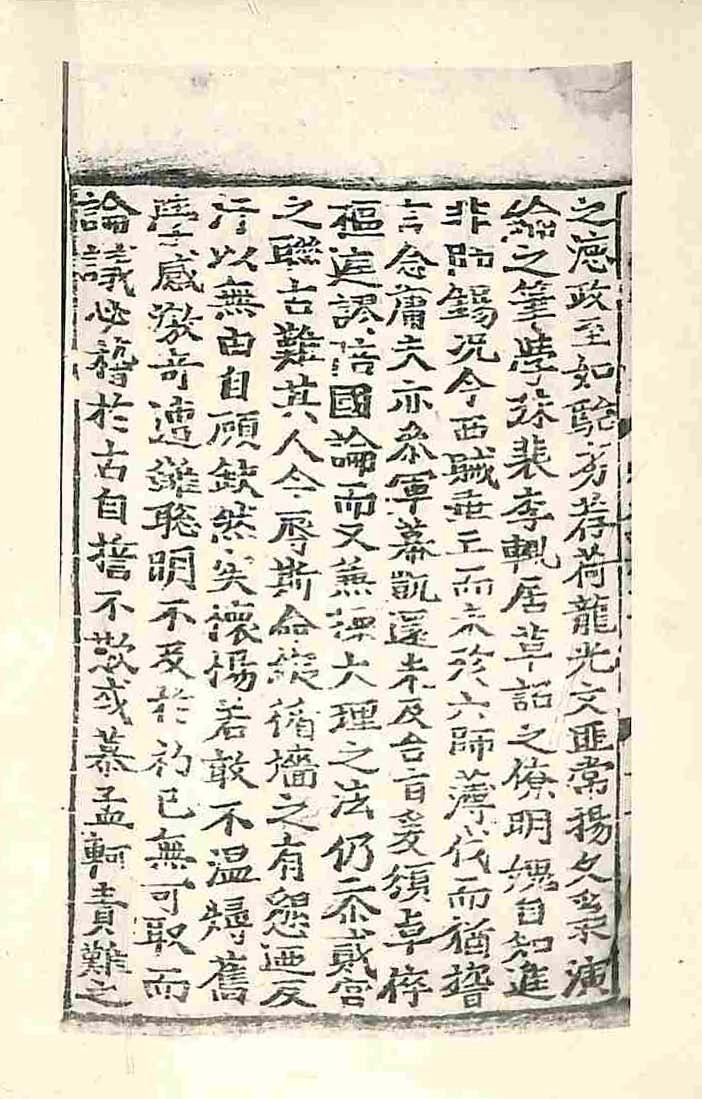 之德政至如駘芳荐荷龍光文匪常揚久玄禾演
綸之筆學殊裴李輒居草詔之僚明媿自知進
非師錫况今西賊垂亡而未殄六師薄伐而猶
言念膚夫亦參軍幕凱還未及台音爰頒卓倅
樞遽認陪國論而又兼揀大理之法仍忝貳宮
之聯古難其人今辱斯命循墻之有懇迺反
汗以無由自顧欿然矣懷惕若敢不温燖舊
學感激奇遭雖聡明不及於初已無可取而
論議必稽於古自誓不欺或慕孟軻責難之